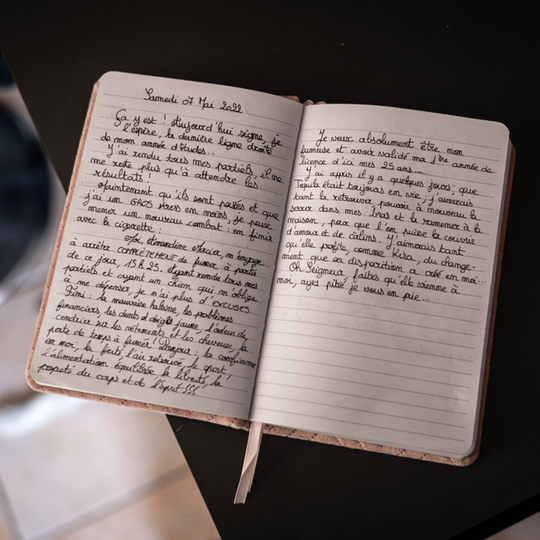 Samedi 07 Mai 2022
Ça y est ! Aujourd'hui signe, je
l'espère, la dernière ligne droite
de mon année d'études...
J'ai rendu tous mes partiels, il ne
me reste plus qu'à attendre les
résultats !
Maintenant qu'ils sont passés et que
j'ai un GROS stress en moins, je peux
mener un nouveau combat : en finir
avec la cigarette :
Moi, Amandine, m'engage
à arrêter COMPLÈTEMENT de fumer à partir
de ce jour, 15h25. Ayant rendu tous mes
partiels et ayant un chien qui m'oblige
à me dépenser, je n'ai plus d'EXCUSES.
Fini : la mauvaise haleine, les problèmes
financiers, les dents et doigts jaunes, l'odeur de
sur les vêtements et les cheveux, la
perte de temps à fumer ! Bonjour : la confiance
en moi, la fierté, l'air retrouvé, le sport,
l'alimentation équilibrée, la liberté, la
propreté du corps et de l'esprit !!!
Je veux absolument être non
fumeuse et avoir validé ma 1ère année de
licence d'ici mes 25 ans...
J'ai appris il y a quelques jours que
Tequila était toujours en vie, j'aimerais
tant la retrouver, pouvoir à nouveau la
serrer dans mes bras et la ramener à la
maison, pour que l'on puisse la couvrir
d'amour et de câlins. J'aimerais tant
qu'elle profite, comme Kira, du change-
ment que sa disparition a créé en moi...
Oh Seigneur, faites qu'elle vienne à
moi, ayez pitié je vous en prie...